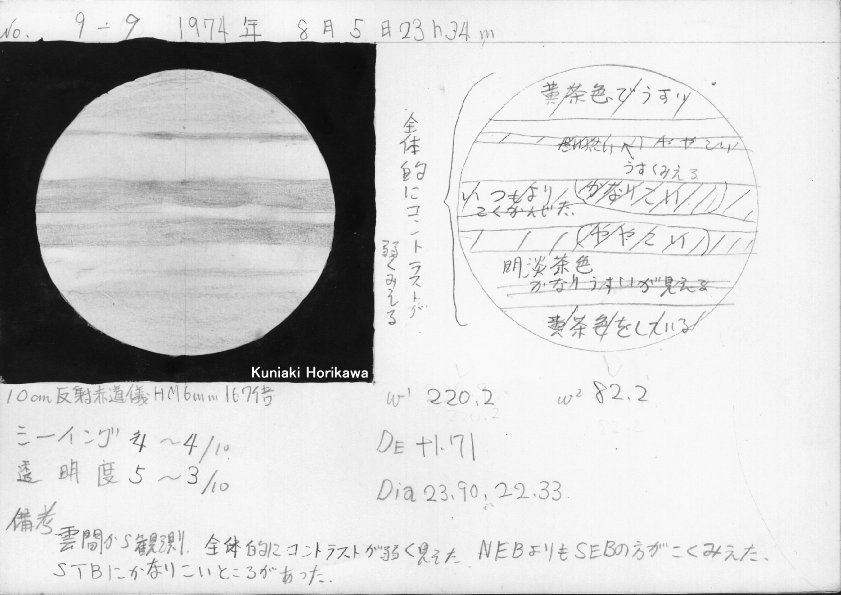 No. 9-9 1974年 8月5日23h34m
黄茶色でうすい
やや こい
うすくみえる
いつもより
こくかんじた
かなりこい
ややこい
明淡茶色
かなりうすいが見える
黄茶色をしている
全体的にコントラストが
弱くみえる
Kuniaki Horikawa
10cm反射赤道儀HM6mm 167倍
ω¹ 220.2 ω² 82.2
シーイング 4〜4/10
透明度 5〜3/10
DE +1.71
Dia 23.90, 22.33
備考
雲間から観測. 全体的にコントラストが弱く見えた. NEBよりもSEBの方がこくみえた、
STBにかなりこいところがあった.